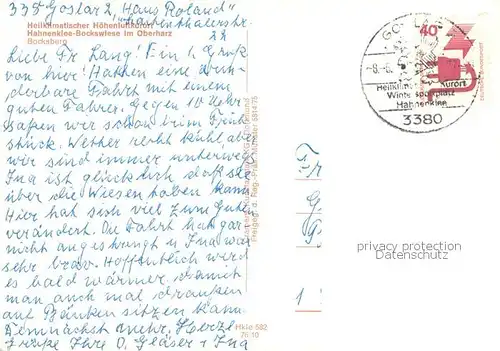 338 Goslar 2, Haus Roland
Heilklimatischer Höhenluftkurort
Hahnenklee-Bockswiese im Oberharz
Bocksberg
Liebe Fr. Lang! Ein 1. Gruß
von hier! Hatten eine wun-
derbare Fahrt mit einem
guten Fahrer. Gegen 10 Uhr
saßen wir schon beim Früh
stück. Wetter recht kühl, aber
wir sind immer unterwegs
Ina ist glücklich daß sie
über die Wiesen toben kann
Hier hat sich viel zum Guten
verändert. Die Fahrt hat gar
nicht angestrengt u Ina war
sehr brav. Hoffentlich wird
es bald wärmer, damit
man auch mal draußen
auf Bänken sitzen kann.
Demnächst mehr. Herzl.
Grüße Ihre O. Gläser + Ina
Freigeg. d. Reg.-Präs. Münster
Hkle 582
76 10
GOSLAR
Heilklimat. Kurort
Wintersportplatz
Hahnenklee
3380
40
Fr
G
1
privacy protection
VERMERK